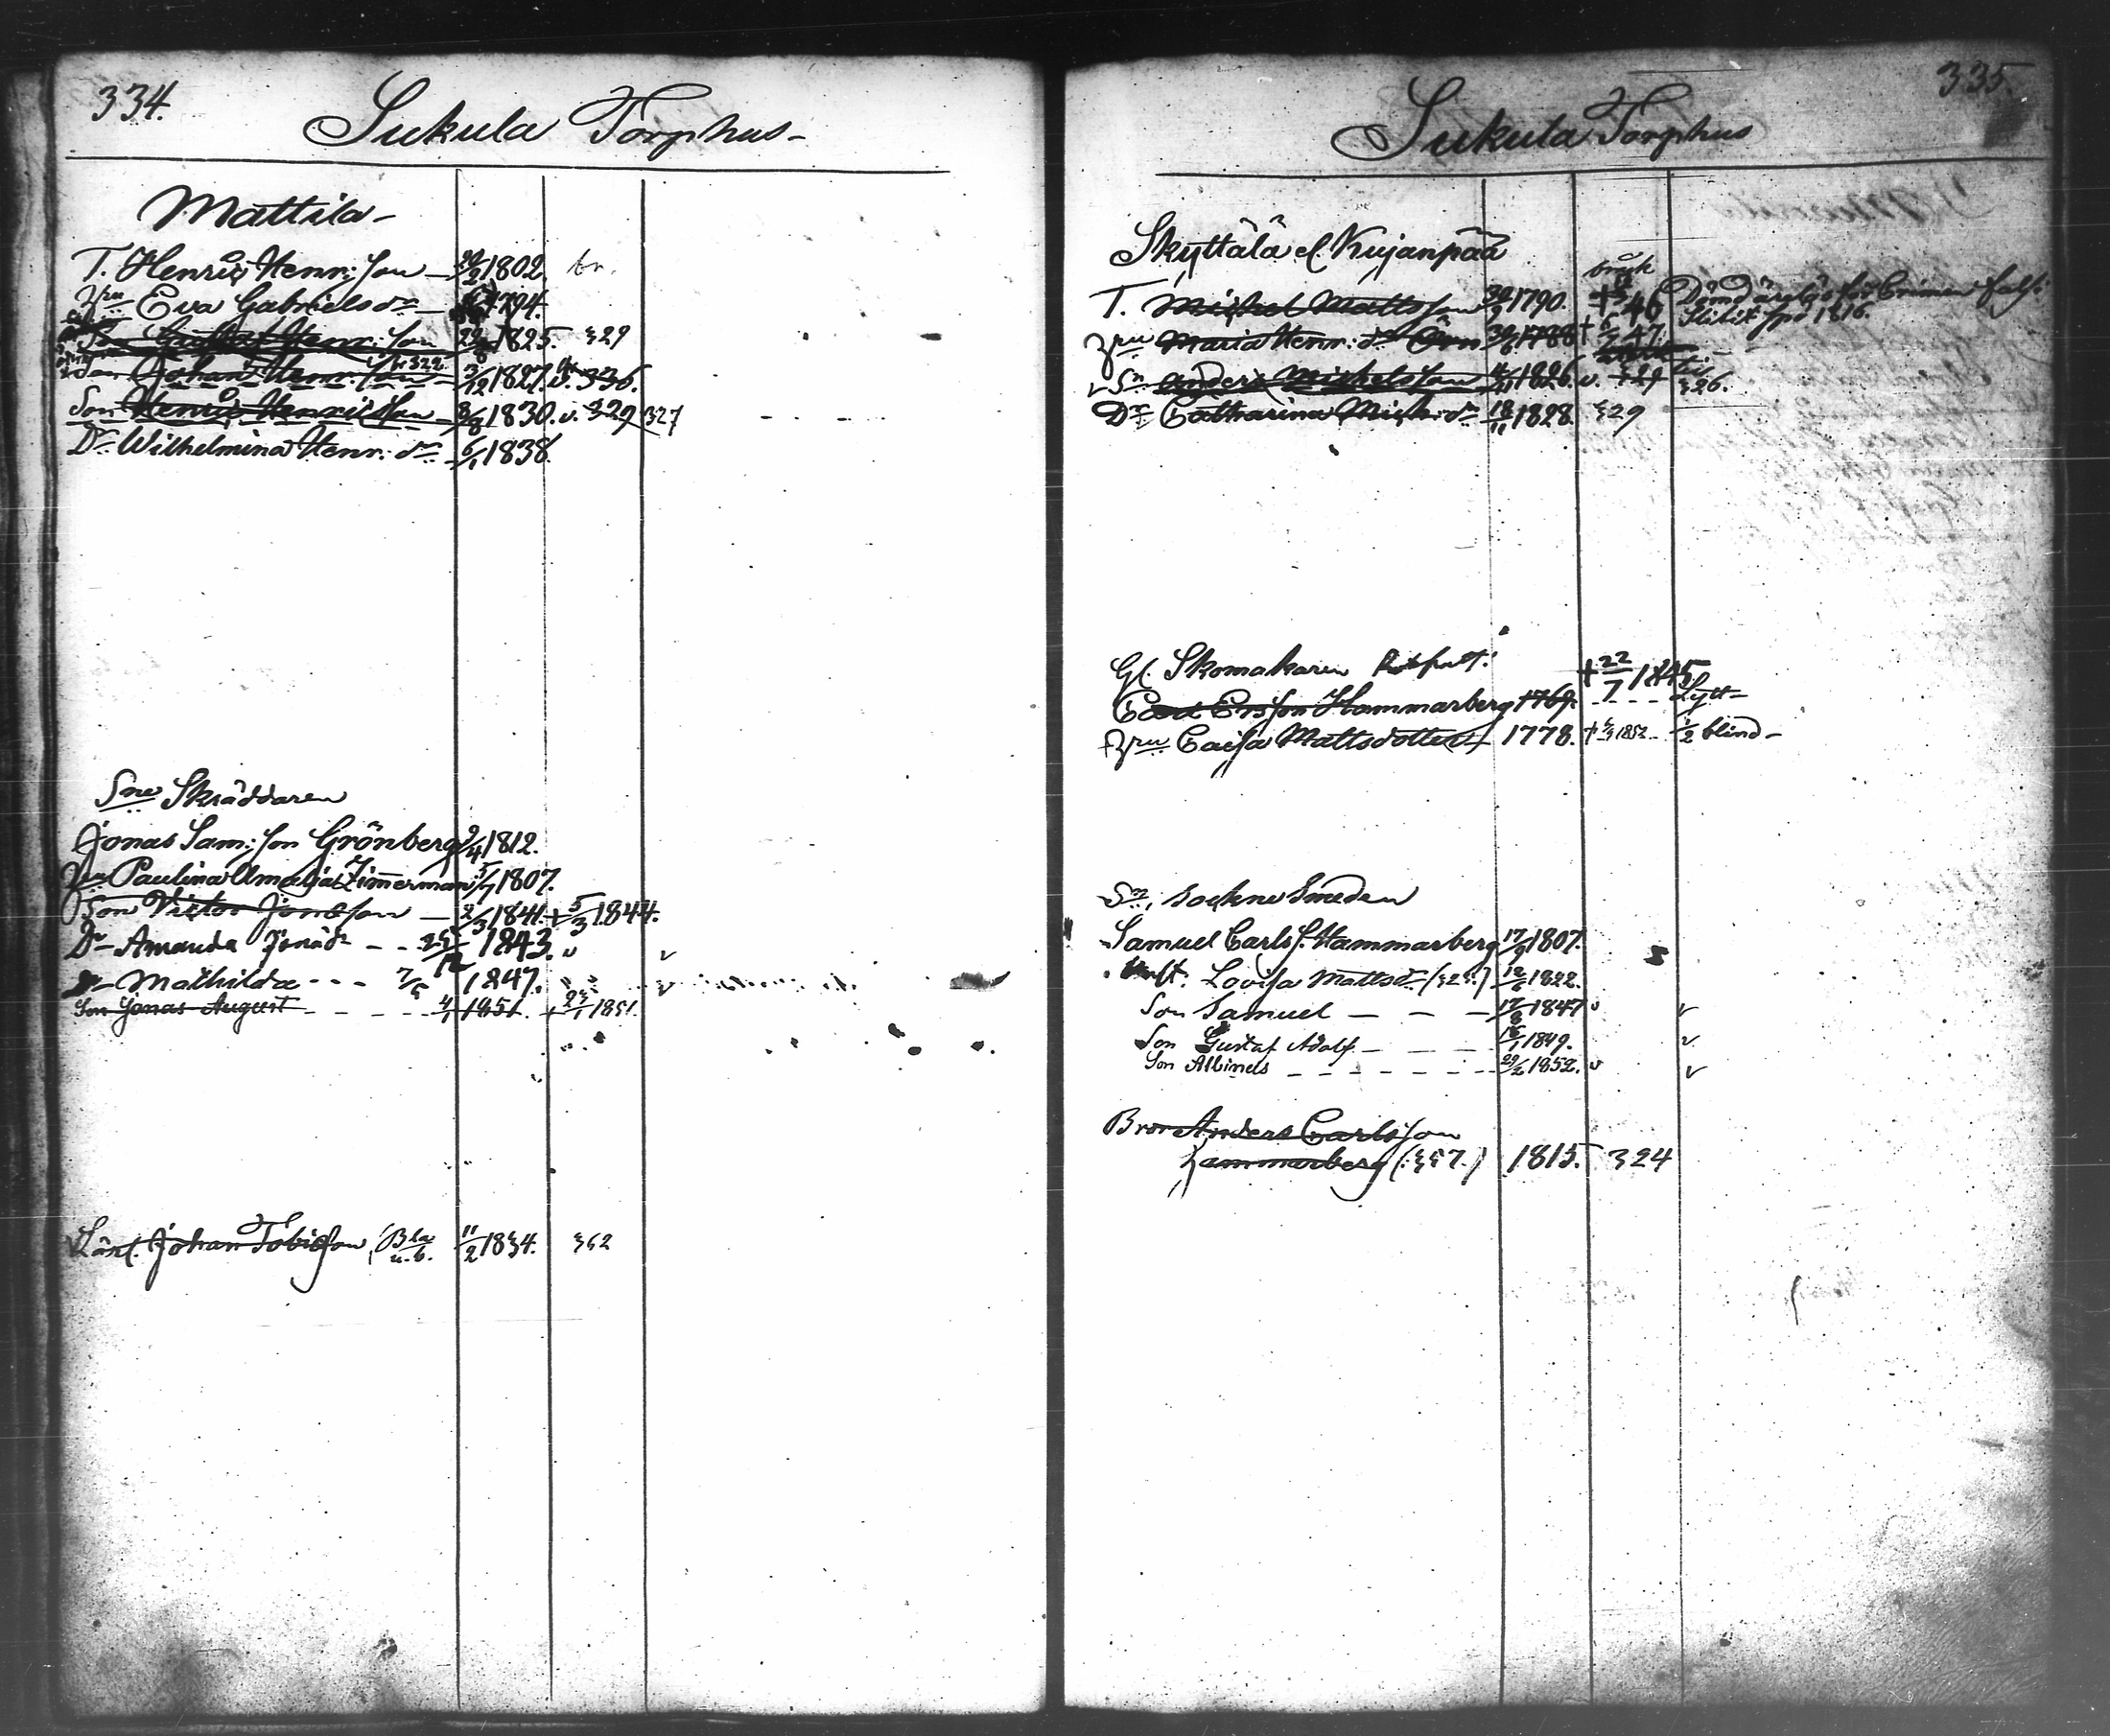 334.
Sukula Torphus
Mattila
T. Henric Henr: son 1802. br.
Hru Eva Gabrielsdr 1794.
Son Gustaf Henr: son 1825. 329
Son Johan Henr: son 3/12 1827. v. 336.
Son Henric Henricsson 8/8 1830. v. 329 327
Dr Wilhelmina Henr: dr 6/1 1838.
Sne Skräddaren
Jonas Sam: son Grönberg 2/4 1812.
Hru Paulina Amalia Zimmerman 5/7 1807.
Son Victor Jonasson 2/3 1841. + 5/3 1844.
Dr Amanda Jonasdr 25/12 1843. v
Dr Mathilda 7/5 1847.
Son Jonas August 4/1 1851. + 1851.
Lärl. Johan Tobiasson 11/2 1834. 362
335.
Sukula Torphus
Skyttälä el. Kujanpää
T. Michel Mattsson 1790. + 46 Dömd ärelös för Crimen fals:
Hru Maria Henr: dr Örn 1788 + 47
v Sn Anders Michelsson 1826. v. 329 326.
Dr Catharina Mich: dr 18/11 1828. 329
Gl. Skomakaren + 22/7 1845
Carl Ersson Hammarberg 1769. Lytt
Hru Caisa Mattsdotter 1778. + 1852 1/2 blind
Sn, sockne Smeden
Samuel Carlss. Hammarberg 17/9 1807.
Lovisa Mattsdr 1822.
Son Samuel 17/8 1847 v
Son Gustaf Adolf 1849.
Son Albinus 29/2 1852. v
Bror Anders Carlsson
Hammarberg 1815. 324